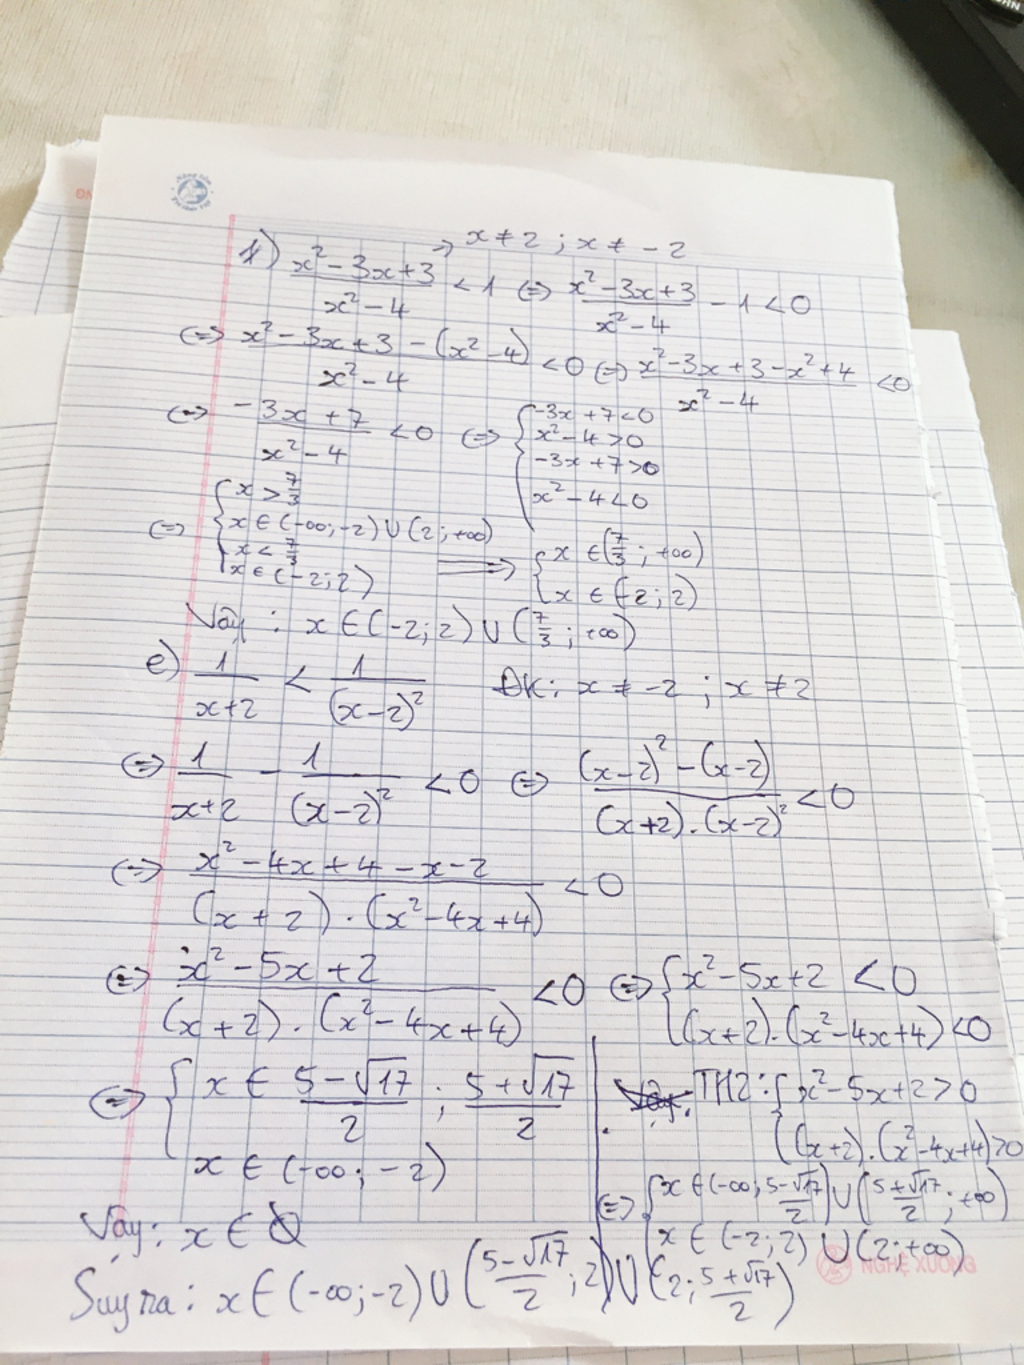 → x ≠ 2 ; x ≠ -2
1) (x² - 3x + 3)/(x² - 4) < 1 ⇔ (x² - 3x + 3)/(x² - 4) - 1 < 0
⇔ (x² - 3x + 3 - (x² - 4))/(x² - 4) < 0 ⇔ (x² - 3x + 3 - x² + 4)/(x² - 4) < 0
⇔ (-3x + 7)/(x² - 4) < 0 ⇔ { -3x + 7 < 0
x² - 4 > 0
-3x + 7 > 0
x² - 4 < 0
⇔ { x > 7/3
x ∈ (-∞; -2) ∪ (2; +∞)
x < 7/3
x ∈ (-2; 2)
⟹ { x ∈ (7/3; +∞)
x ∈ (-2; 2)
Vậy : x ∈ (-2; 2) ∪ (7/3; +∞)
e) 1/(x+2) < 1/(x-2)² ĐK: x ≠ -2 ; x ≠ 2
⇔ 1/(x+2) - 1/(x-2)² < 0 ⇔ ((x-2)² - (x-2))/((x+2).(x-2)²) < 0
⇔ (x² - 4x + 4 - x - 2)/((x+2).(x² - 4x + 4)) < 0
⇔ (x² - 5x + 2)/((x+2).(x² - 4x + 4)) < 0 ⇔ { x² - 5x + 2 < 0
(x+2).(x² - 4x + 4) < 0
⇔ { x ∈ (5 - √17)/2 ; (5 + √17)/2
x ∈ (-∞; -2)
Vậy: x ∈ Ø
TH2: { x² - 5x + 2 > 0
((x+2).(x² - 4x + 4) > 0
⇔ { x ∈ (-∞; (5 - √17)/2) ∪ ((5 + √17)/2; +∞)
x ∈ (-2; 2) ∪ (2; +∞)
NGHỆ XƯƠNG
Suy ra: x ∈ (-∞; -2) ∪ ((5 - √17)/2; 2) ∪ (2; (5 + √17)/2)